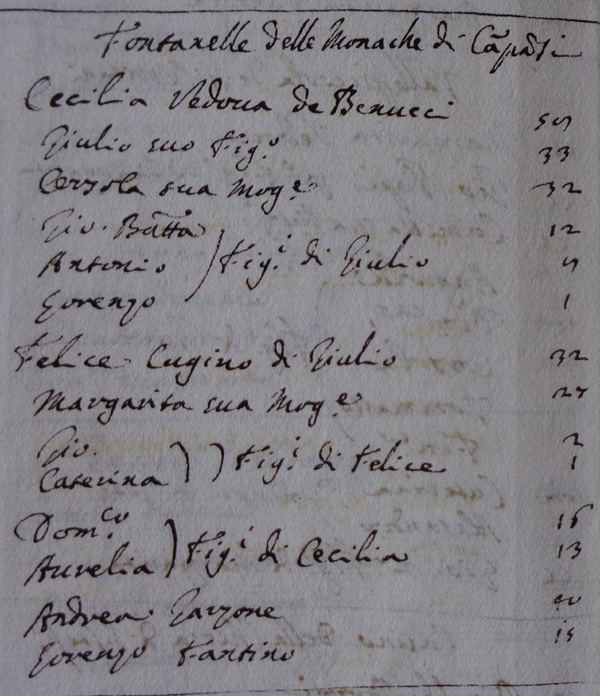 Fontanelle delle Monache di Cāpāsi
Cecilia Vedova de Benucci 59
Giulio suo Fig.o 33
Cersola sua Mog.e 32
Gio. Batta 12
Antonio } Fig.i di Giulio 9
Lorenzo 1
Felice Cugino di Giulio 32
Margarita sua Mog.e 27
Gio. 2
Caterina } } Fig.i di Felice 1
Dom.co 16
Aurelia } Fig.i di Cecilia 13
Andrea Garzone
Lorenzo Fantino 15